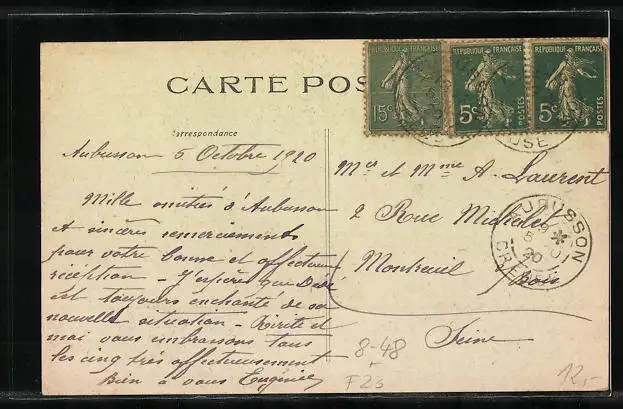 CARTE POS
RÉPUBLIQUE FRANÇAISE
15c
POSTES
RÉPUBLIQUE FRANÇAISE
5c
POSTES
RÉPUBLIQUE FRANÇAISE
5c
POSTES
USE
Correspondance
Aubusson 5 Octobre 1920
Mille amitiés d'Aubusson
et sincères remerciements
pour votre bonne et affectueuse
réception - J'espère que Dédé
est toujours enchanté de sa
nouvelle situation - et
moi vous embrassons tous
les cinq très affectueusement
Bien à vous Eugénie
Mr et Mme A. Laurent
2 Rue Michelet
Montreuil s/ bois
Seine
AUBUSSON
CREUSE
8-48
F23
12,-